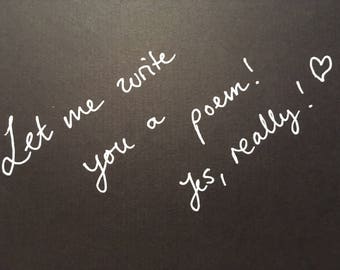 Let me write
you a poem!
Yes, really! ♡